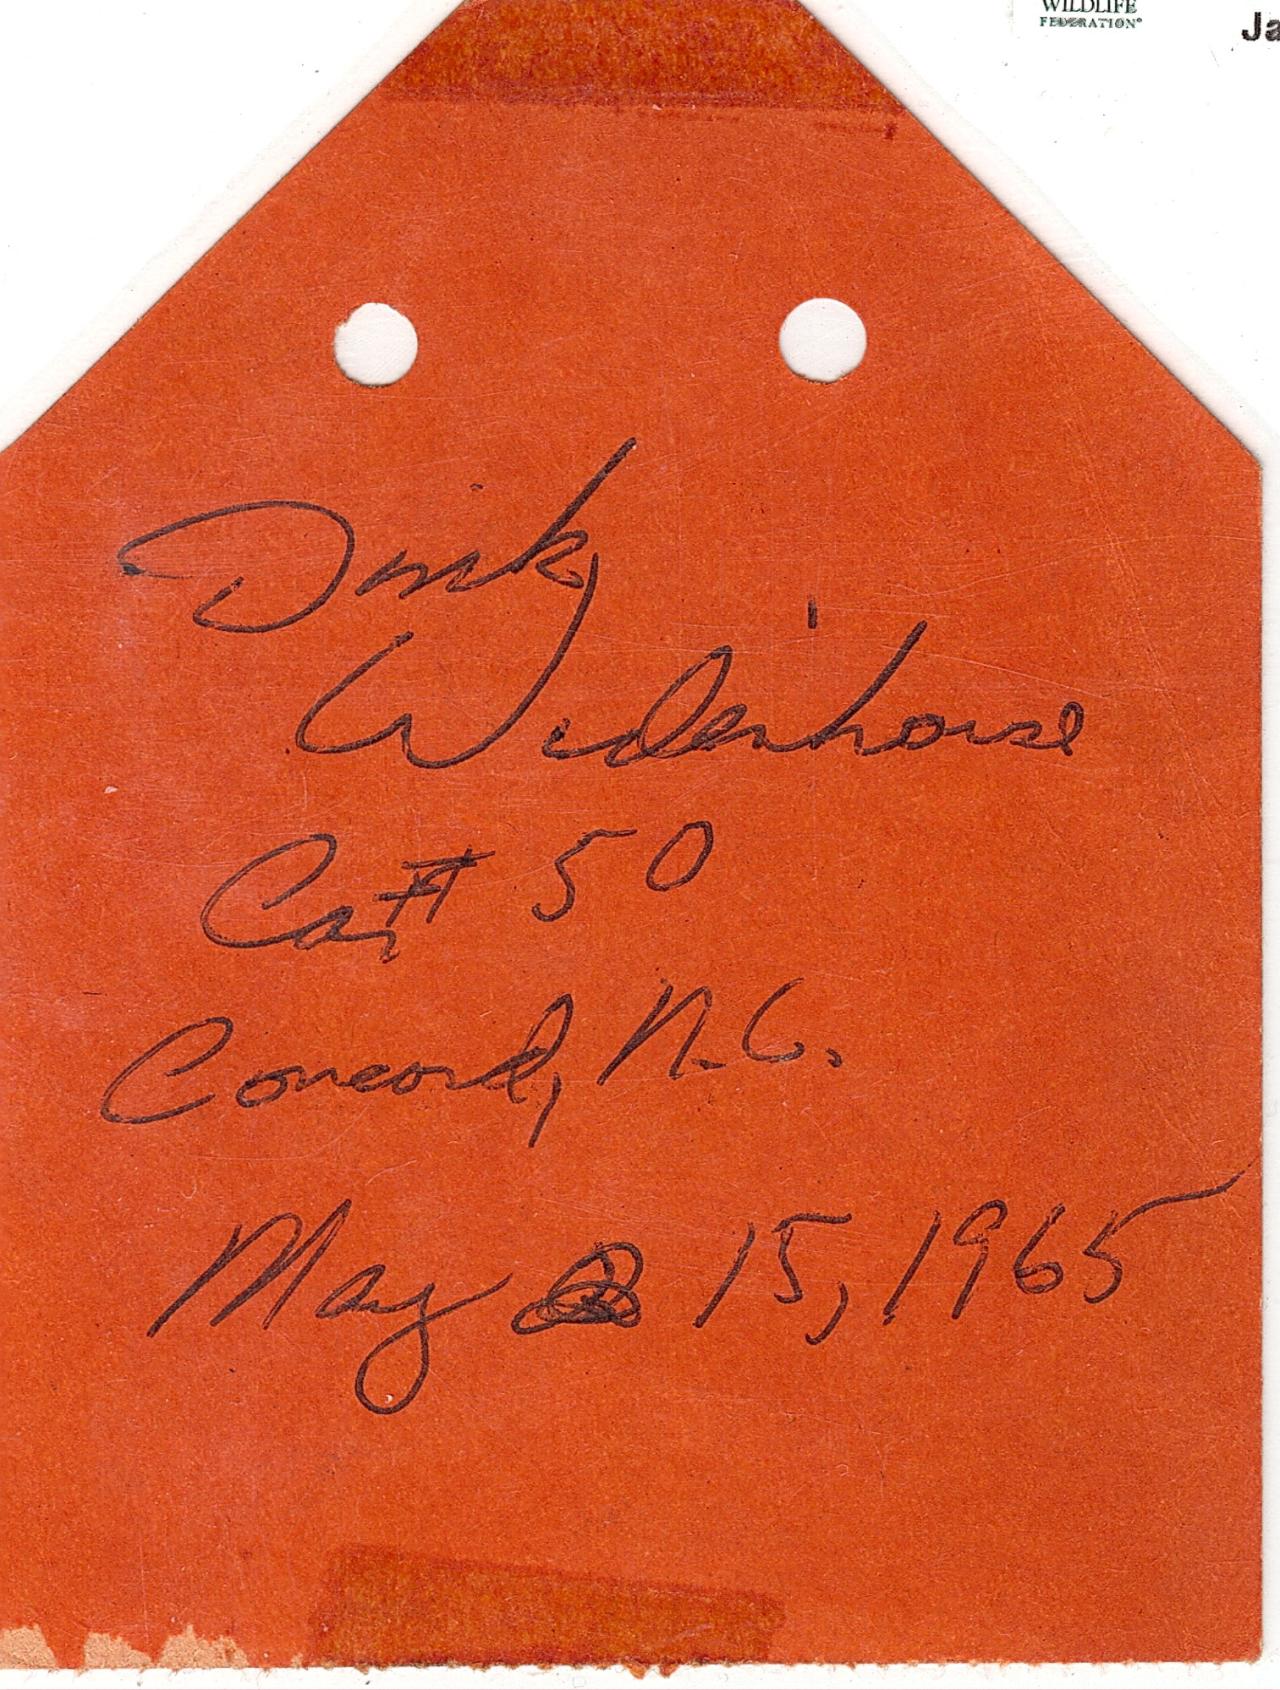 WILDLIFE
FEDERATION®
Ja
Dink
Widenhouse
Car# 50
Concord, N.C.
May 15, 1965